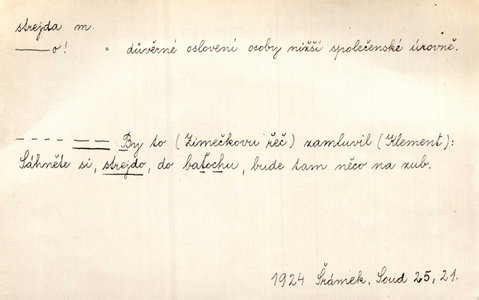 strejda m.
——o! " důvěrné oslovení osoby nižší společenské úrovně.
---- —— By to (Zimečkovu řěč) zamluvil (Klement):
Sáhněte si, strejdo, do baťochu, bude tam něco na zub.
1924 Šrámek, Soud 25, 21.